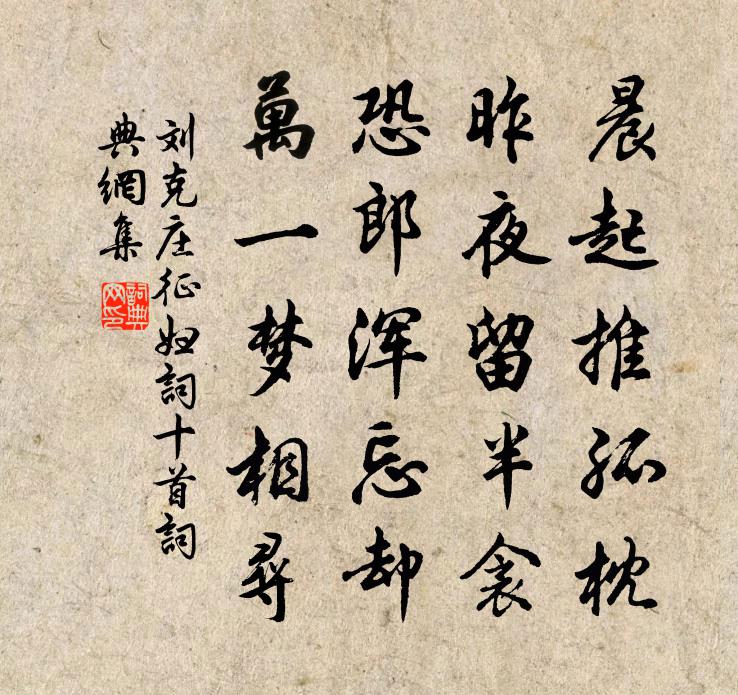 晨起推孤枕
昨夜留半衾
恐郎浑忘却
萬一梦相尋
刘克庄征妇詞十首詞
典網集
詞典网印